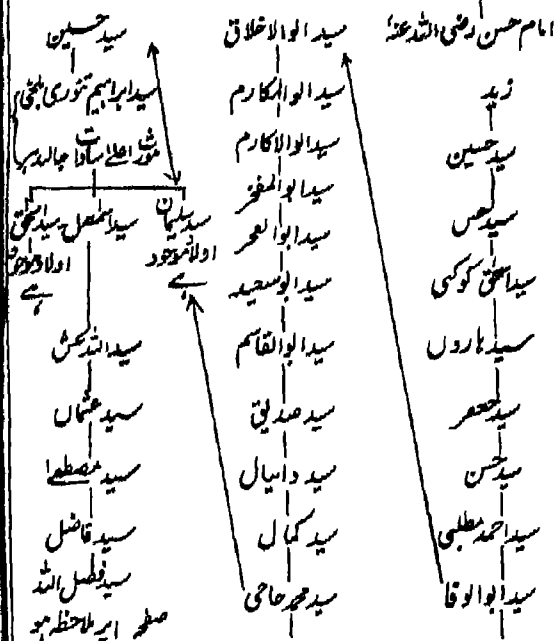 امام حسن رضی اللہ عنہ
زید
سید حسین
سید اسحٰق کوکبی
سید ہاروں
سید جعفر
سید حسن
سید احمد مطلبی
سید ابوالوفا
سید ابوالاخلاق
سید ابوالمکارم
سید ابوالاکارم
سید ابوالمفخر
سید ابوسعید
سید ابوالقاسم
سید صدیق
سید دانیال
سید کمال
سید محمد حاجی
سید حسین
سید ابراہیم تنوری بلخی
مورث اعلےٰ سادات جالندہر
سید سلیمان
اولاد موجود
ہے
سید اسمعیل
سید اسحٰق
اولاد موجود
ہے
سید اللہ بخش
سید عثماں
سید مصطفےٰ
سید فاضل
سید فضل اللہ
صفحہ پر ملاحظہ ہو